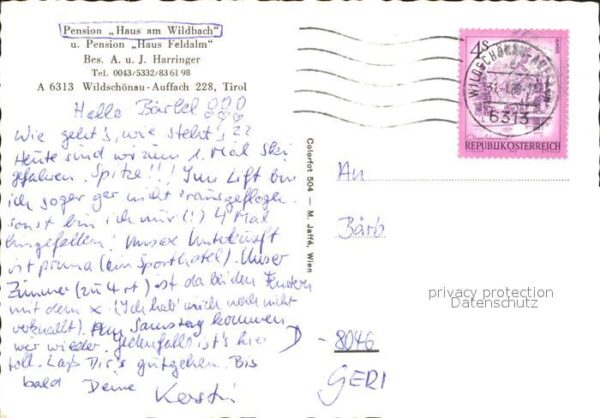 Pension „Haus am Wildbach"
u. Pension „Haus Feldalm"
Bes. A. u. J. Harringer
Tel. 0043/5332/83 61 98
A 6313 Wildschönau-Auffach 228, Tirol
Hallo Bärbel !!!
Wie geht's, wie steht's ??
Heute sind wir zum 1. Mal Ski
gefahren. Spitze!!! Im Lift bin
ich sogar gar nicht rausgeflogen.
sonst bin ich nur (!) 4 Mal
hingefallen! Unsere Unterkunft
ist prima (ein Sporthotel). Unser
Zimmer (zu 4rt) ist da bei den Fenstern
mit dem x. (Ich hab' mich noch nicht
verknallt). Am Samstag kommen
wir wieder. Jedenfalls ist's hier
toll. Laß Dir's gutgehen. Bis
bald Deine Kerstin
Colorfot 504 — M. Jaffé, Wien
4S
REPUBLIK ÖSTERREICH
WILDSCHÖNAU-AUFFACH
6313
An
Bärb
privacy protection
Datenschutz
D - 8046
GERI